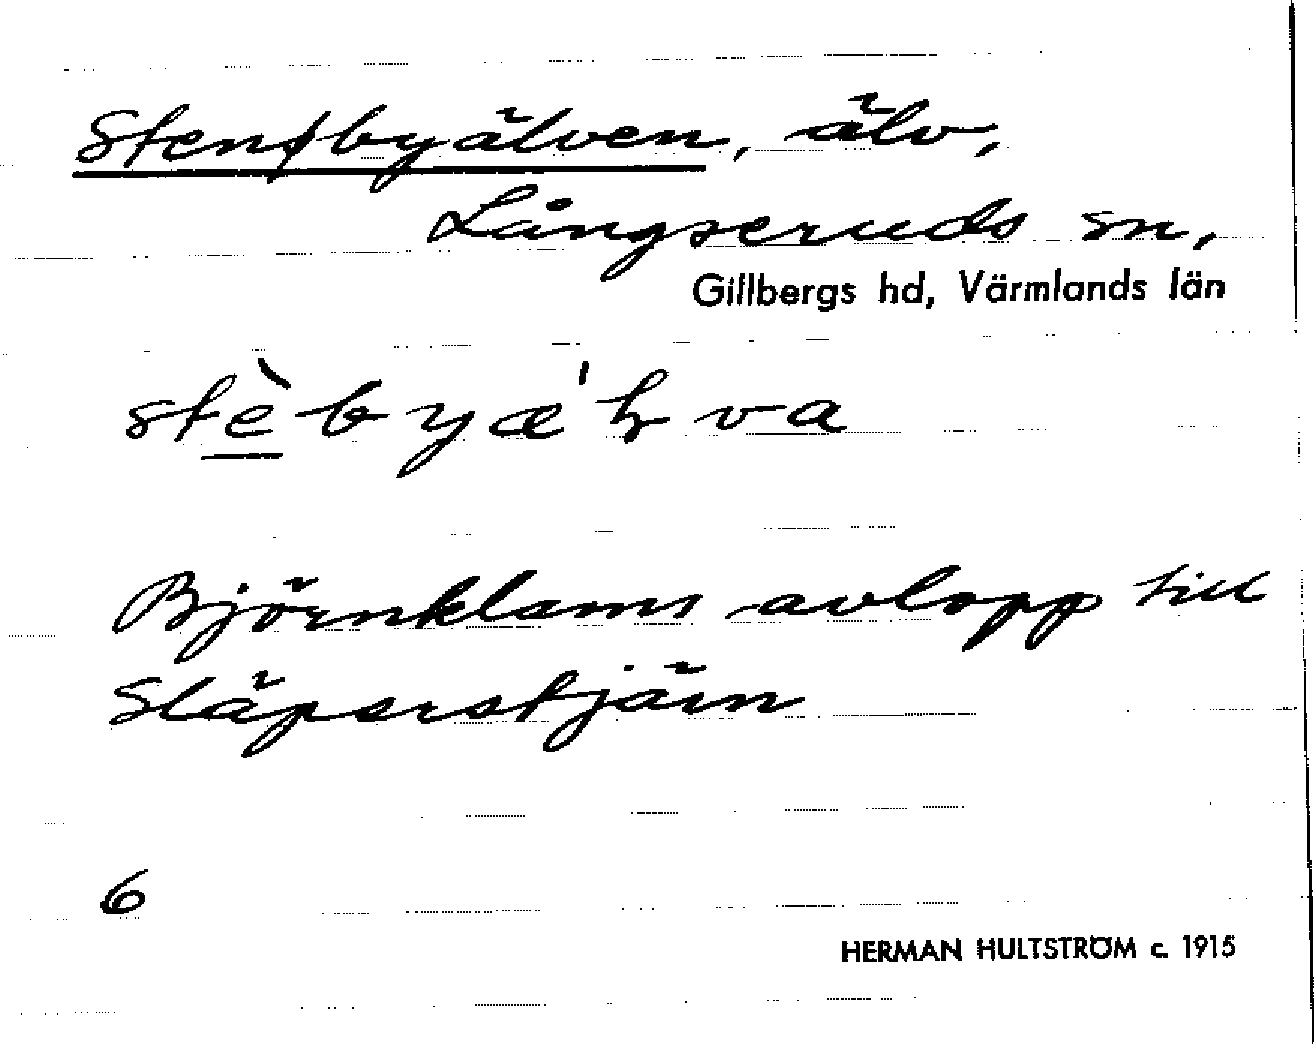 Stensbyälven, älv,
Långseruds sn,
Gillbergs hd, Värmlands län
stèbyæ'ɽva
Björnklams avlopp till
Släperstjärn
6
HERMAN HULTSTRÖM c. 1915